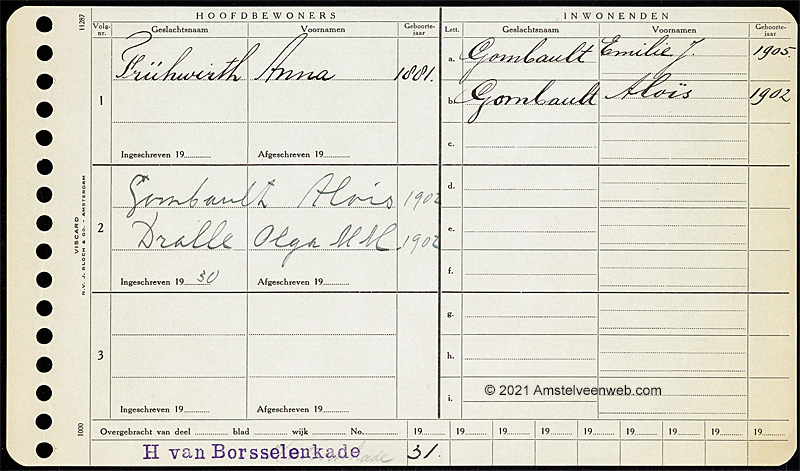 HOOFDBEWONERS
Volg-nr. Geslachtsnaam Voornamen Geboorte-jaar
1 Frühwirth Anna 1881.
Ingeschreven 19 Afgeschreven 19
2 Gombault Alois 1902
Dralle Olga M M. 1902
Ingeschreven 1930 Afgeschreven 19
3
Ingeschreven 19 Afgeschreven 19
INWONENDEN
Lett. Geslachtsnaam Voornamen Geboorte-jaar
a. Gombault Emilie J. 1905.
b. Gombault Aloïs 1902
c.
d.
e.
f.
g.
h.
i.
© 2021 Amstelveenweb.com
Overgebracht van deel blad wijk No. 19 19 19 19 19 19 19 19 19
H van Borsselenkade 31.
11287
VISCARD
N.V. J. BLOCH & CO. - AMSTERDAM
1000